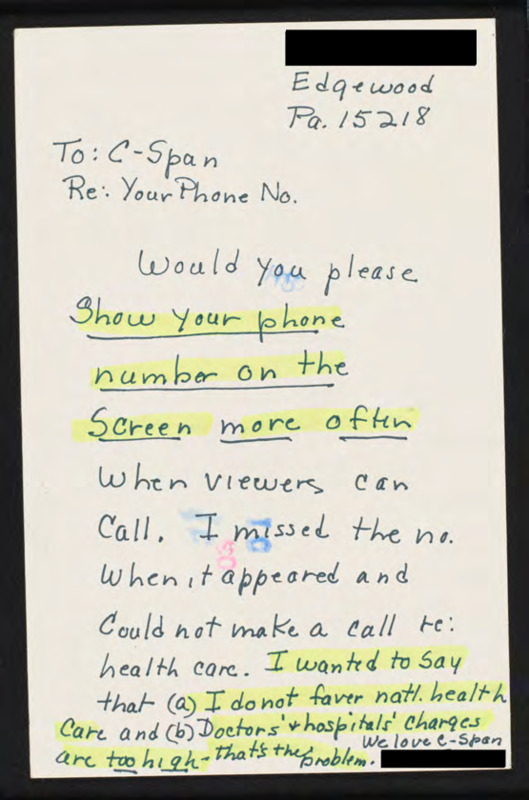 Edgewood
Pa. 15218
To: C-Span
Re: Your Phone No.
Would you please
Show your phone
number on the
Screen more often
When viewers can
Call. I missed the no.
When it appeared and
Could not make a call re:
health care. I wanted to Say
that (a) I do not faver natl. health
Care and (b) Doctors' + hospitals' charges
are too high - that's the problem. We love C-Span